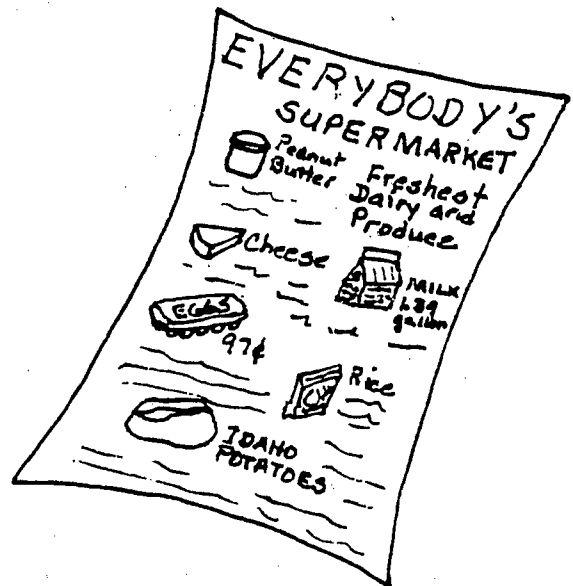 EVERYBODY'S
SUPERMARKET
Peanut
Butter
Freshest
Dairy and
Produce
Cheese
MILK
1.89
gallon
EGGS
97¢
Rice
IDAHO
POTATOES